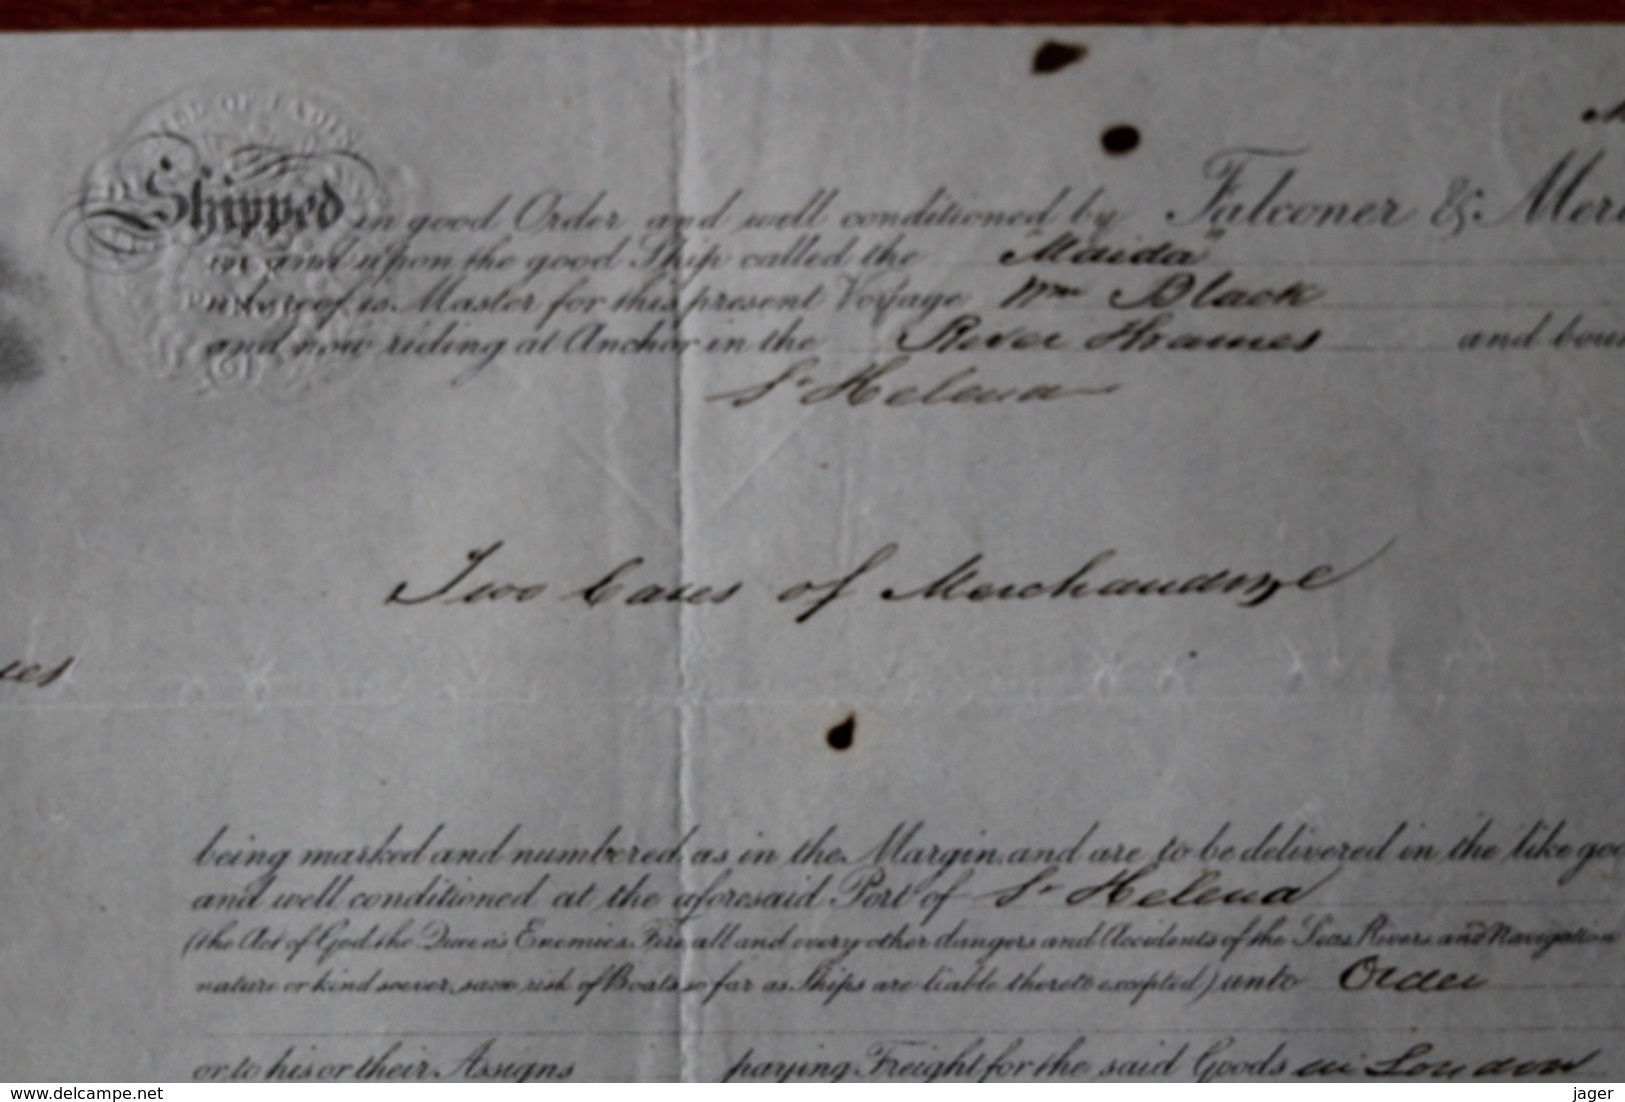 BILL OF LADING
Shipped in good Order and well conditioned by Falconer & Mer
in and upon the good Ship called the "Maida"
whereof is Master for this present Voyage Wm Black
and now riding at Anchor in the River Thames and bou
St Helena
Two Cases of Merchandize
being marked and numbered as in the Margin and are to be delivered in the like goo
and well conditioned at the aforesaid Port of St Helena
(the Act of God, the Queen's Enemies, Fire, all and every other dangers and Accidents of the Seas, Rivers and Navigation
nature or kind soever, save risk of Boats, so far as Ships are liable thereto excepted) unto Order
or to his or their Assigns paying Freight for the said Goods in London
www.delcampe.net
jager